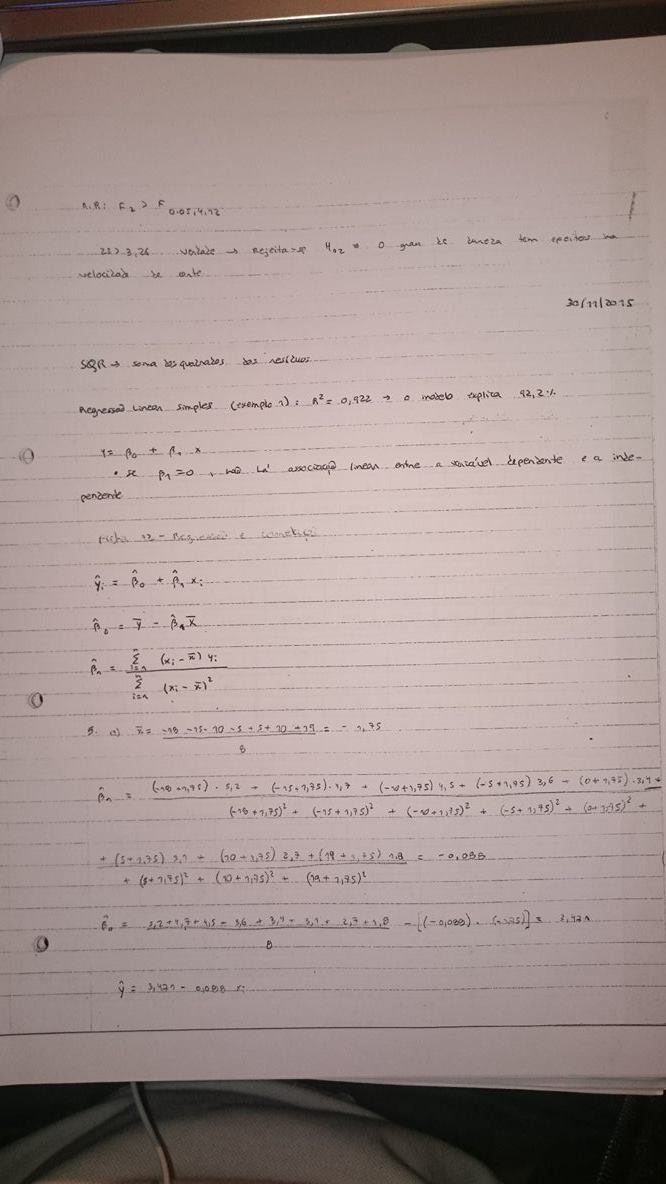 R.R: F₂ > F 0.05,4,12
25 > 3,26 Verdade → Rejeita-se H₀₂ O grau de dureza tem efeitos na
velocidade de corte.
30/11/2015
SQR → soma dos quadrados dos resíduos
Regressão linear simples (exemplo 1): R² = 0,922 → o modelo explica 92,2%
Y = β₀ + β₁ x
• se β₁ = 0, não há associação linear entre a variável dependente e a inde-
pendente
Ficha 12 - Regressão e correlação
ŷᵢ = β̂₀ + β̂₁ xᵢ
β̂₀ = ȳ - β̂₁ x̄
β̂₁ = Σⁿᵢ₌₁ (xᵢ - x̄) yᵢ
Σⁿᵢ₌₁ (xᵢ - x̄)²
5. a) x̄ = -18 -15 -10 -5 +5 + 10 + 19 = -1,75
8
β̂₁ = (-18 +1,75) · 5,2 + (-15+1,75) · 4,7 + (-10+1,75) 4,5 + (-5+1,75) 3,6 + (0+1,75) · 3,4 +
(-18 +1,75)² + (-15+1,75)² + (-10+1,75)² + (-5+1,75)² + (0+1,75)² +
+ (5+1,75) 3,1 + (10+1,75) 2,7 + (19+1,75) 1,8 = -0,088
+ (5+1,75)² + (10+1,75)² + (19+1,75)²
β̂₀ = 5,2+4,7+4,5+3,6+3,4+3,1+2,7+1,8 - [(-0,088) · (-1,75)] = 3,421
8
ŷ = 3,421 - 0,088 xᵢ